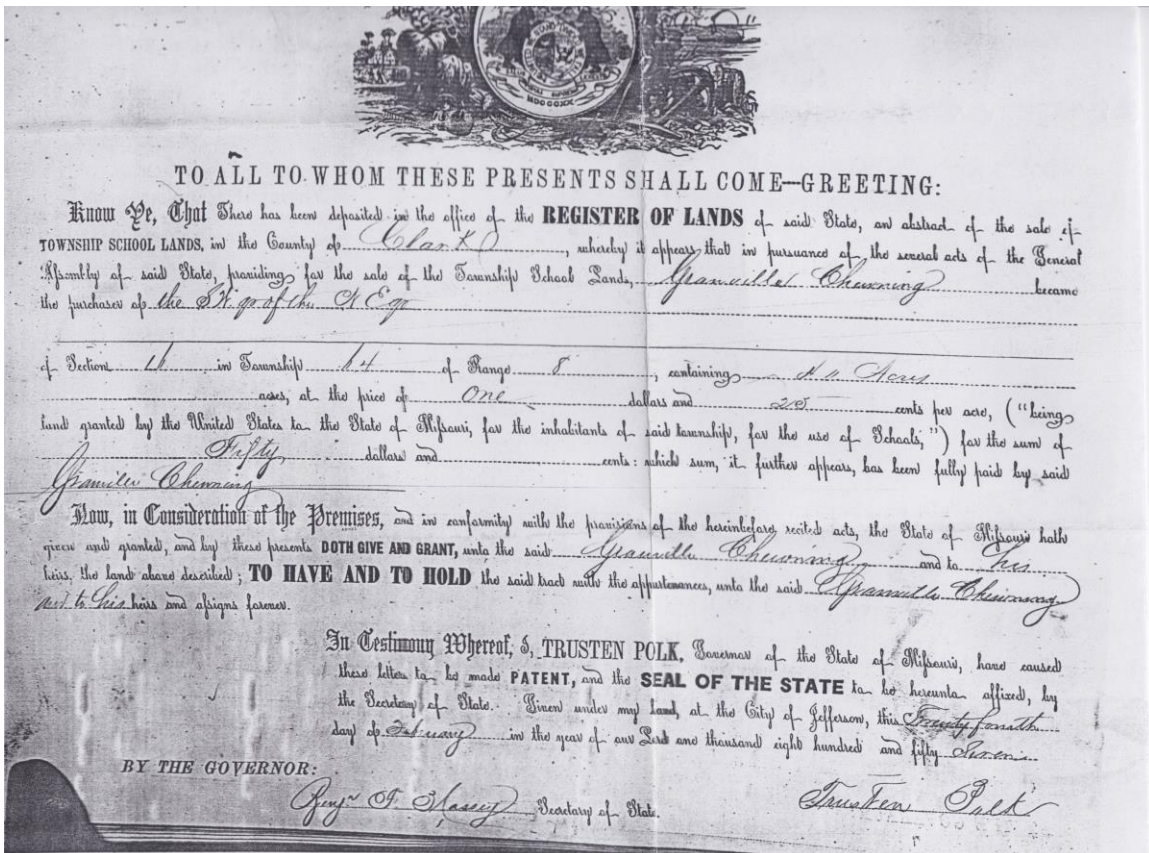 MDCCCXX
TO ALL TO WHOM THESE PRESENTS SHALL COME—GREETING:
Know Ye, That There has been deposited in the office of the REGISTER OF LANDS of said State, an abstract of the sale of
TOWNSHIP SCHOOL LANDS, in the County of Clark, whereby it appears that in pursuance of the several acts of the General
Assembly of said State, providing for the sale of the Township School Lands, Granville Chewning became
the purchaser of the S.W. qr of the N E qr
of Section 16 in Township 64 of Range 8, containing Acres
acres, at the price of One dollars and 25 cents per acre, ("being
land granted by the United States to the State of Missouri, for the inhabitants of said township, for the use of Schools,") for the sum of
Fifty dollars and cents: which sum, it further appears, has been fully paid by said
Granville Chewning
Now, in Consideration of the Premises, and in conformity with the provisions of the hereinbefore recited acts, the State of Missouri hath
given and granted, and by these presents DOTH GIVE AND GRANT, unto the said Granville Chewning and to his
heirs, the land above described; TO HAVE AND TO HOLD the said tract with the appurtenances, unto the said Granville Chewning
and to his heirs and assigns forever.
In Testimony Whereof, I, TRUSTEN POLK, Governor of the State of Missouri, have caused
these letters to be made PATENT, and the SEAL OF THE STATE to be hereunto affixed, by
the Secretary of State. Given under my hand, at the City of Jefferson, this Twenty fourth
day of February in the year of our Lord one thousand eight hundred and fifty Seven
BY THE GOVERNOR:
Benjn F. Massey Secretary of State. Trusten Polk